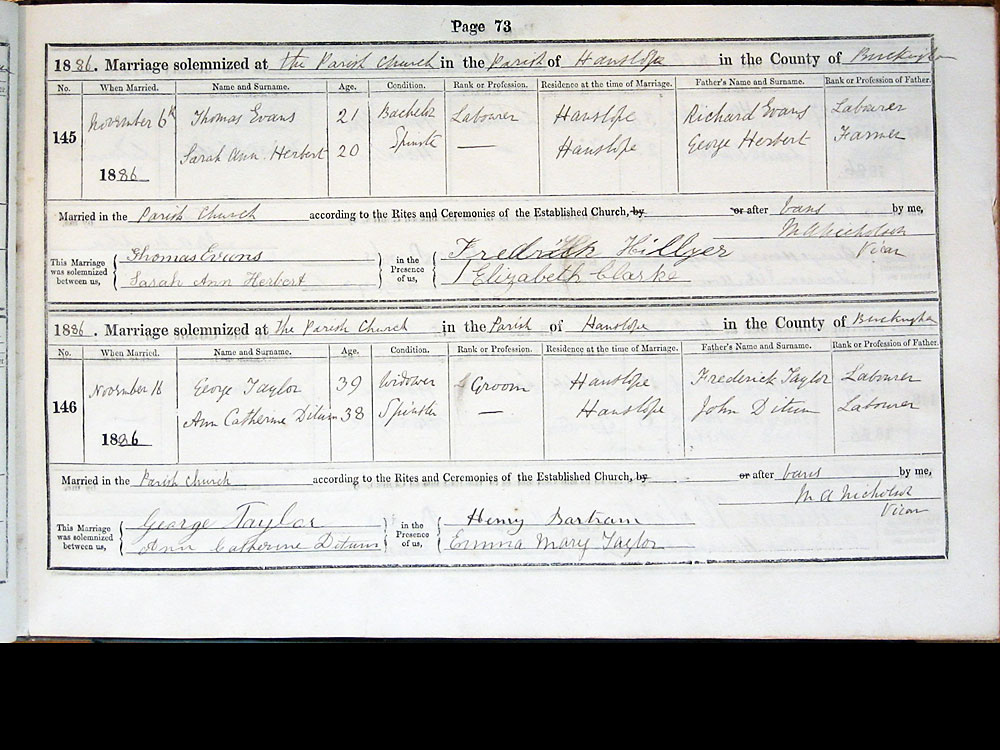 Page 73
1886. Marriage solemnized at the Parish Church in the Parish of Hanslope in the County of Buckingham
No. When Married. Name and Surname. Age. Condition. Rank or Profession. Residence at the time of Marriage. Father's Name and Surname. Rank or Profession of Father.
145 November 6th Thomas Evans 21 Bachelor Labourer Hanslope Richard Evans Labourer
1886 Sarah Ann Herbert 20 Spinster — Hanslope George Herbert Farmer
Married in the Parish Church according to the Rites and Ceremonies of the Established Church, by or after bans by me,
M A Nicholson
Vicar
This Marriage was solemnized between us, Thomas Evans in the Presence of us, Fredrick Hillyer
Sarah Ann Herbert Elizabeth Clarke
1886. Marriage solemnized at the Parish Church in the Parish of Hanslope in the County of Buckingham
No. When Married. Name and Surname. Age. Condition. Rank or Profession. Residence at the time of Marriage. Father's Name and Surname. Rank or Profession of Father.
146 November 16 George Taylor 39 Widower Groom Hanslope Frederick Taylor Labourer
1886 Ann Catherine Ditum 38 Spinster — Hanslope John Ditum Labourer
Married in the Parish Church according to the Rites and Ceremonies of the Established Church, by or after bans by me,
M A Nicholson
Vicar
This Marriage was solemnized between us, George Taylor in the Presence of us, Henry Bartram
Ann Catherine Ditum Emma Mary Taylor